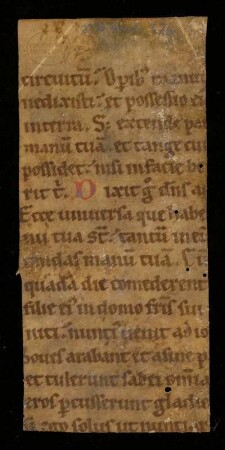 circuitū. Op̄ib; manuū
nedixisti. et possessio ei
interra. S; extende pau
manū tuā. et tange cun
possidet. nisi in facie be
rit t̄. Dixit g̊ dn̄s ad
Ecce universa que habe
nu tua st̄. tantū in eū
tendas manū tuā.
quadā die comederent
filie ei⁹ in domo fr̄is sui
niti. nunti⁹ venit ad io
boues arabant et asine p
et tulerunt sabei om̄ia
eros p̄cusserunt gladio
ego solus ut nunti